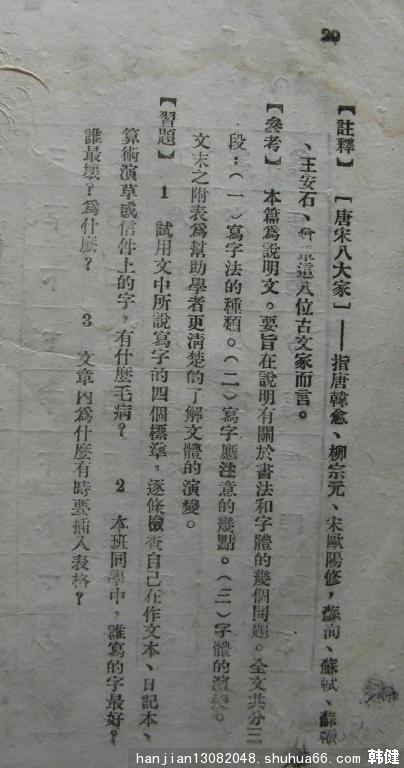 20
【註釋】 [唐宋八大家]——指唐韓愈、柳宗元、宋歐陽修，蘇洵、蘇軾、蘇
、王安石、這八位古文家而言。
【參考】 本篇爲說明文。要旨在說明有關於書法和字體的幾個問題。全文共分三
段：(一)寫字法的種類。(二)寫字應注意的幾點。(三)字體的演
文末之附表爲幫助學者更清楚的了解文體的演變。
【習題】 1 試用文中所說寫字的四個標準，逐條檢查自己在作文本、日記本、
算術演草或信件上的字，有什麼毛病？ 2 本班同學中，誰寫的字最好？
誰最壞？爲什麼？ 3 文章內爲什麼有時要插入表格？
hanjian13082048.shuhua66.com 韩健